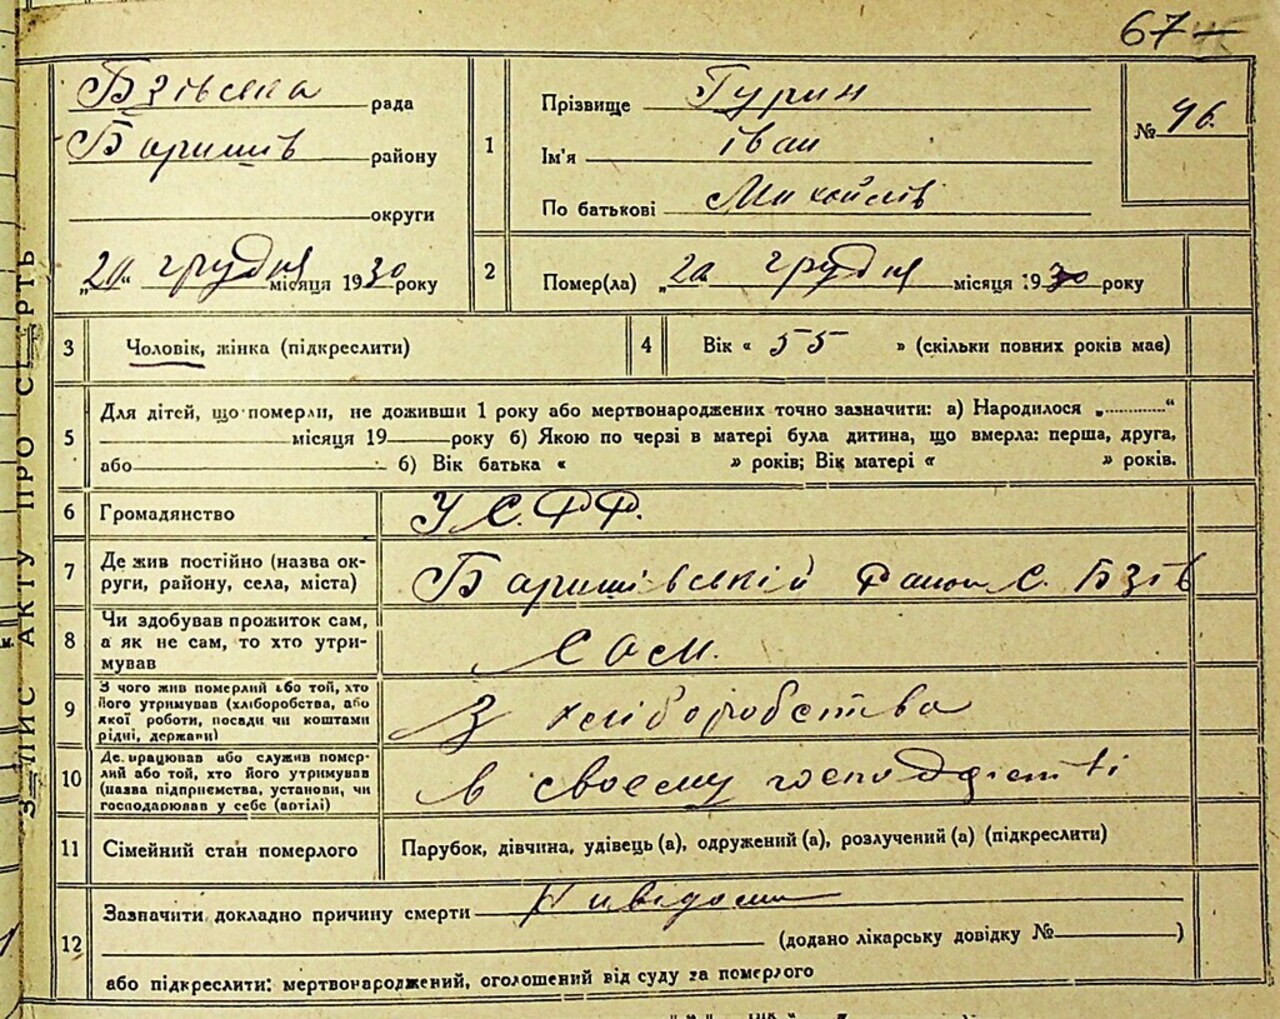 67
Бзівська рада
Баришів району
округи
„20“ грудня місяця 1930 року
1
Прізвище Гурин
Ім'я іван
По батькові Михайлів
№ 46.
2
Помер(ла) „20“ грудня місяця 1930 року
3
Чоловік, жінка (підкреслити)
4
Вік « 55 » (скільки повних років має)
5
Для дітей, що померли, не доживши 1 року або мертвонароджених точно зазначити: а) Народилося „............“
місяця 19 року б) Якою по черзі в матері була дитина, що вмерла: перша, друга,
або б) Вік батька « » років; Вік матері « » років.
6
Громадянство
У.С.Р.Р.
7
Де жив постійно (назва ок-
руги, району, села, міста)
Баришівський район С. Бзів
8
Чи здобував прожиток сам,
а як не сам, то хто утри-
мував
Сам.
9
З чого жив померлий або той, хто
його утримував (хліборобства, або
якої роботи, посади чи коштами
рідні, держави)
З хліборобства
10
Де працював або служив помер-
лий або той, хто його утримував
(назва підприємства, установи, чи
господарював у себе (артілі)
в своєму господарстві
11
Сімейний стан померлого
Парубок, дівчина, удівець (а), одружений (а), розлучений (а) (підкреслити)
12
Зазначити докладно причину смерти
(додано лікарську довідку № )
або підкреслити: мертвонароджений, оголошений від суду за померлого
ЗАПИС АКТУ ПРО СМЕРТЬ